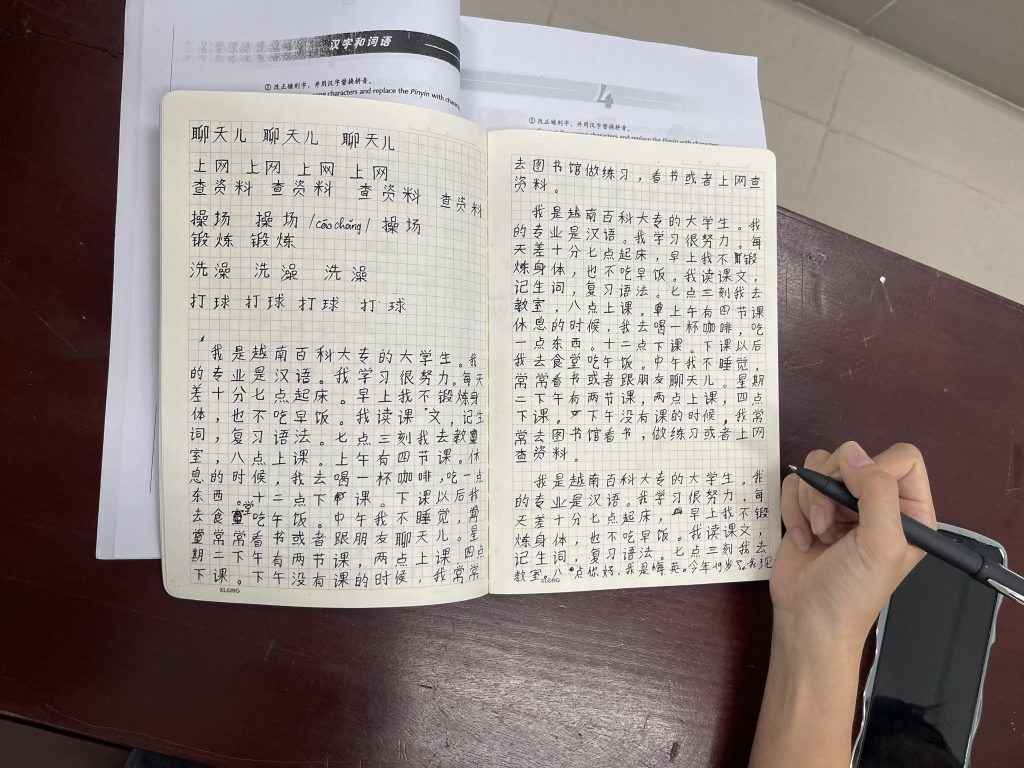 汉字和词语
② 改正错别字，并用汉字替换拼音。
characters and replace the Pinyin with
4
② 改正错别字，并用汉字替换拼音。
聊天儿 聊天儿 聊天儿
上网 上网 上网 上网
查资料 查资料 查资料 查资料
操场 操场 /cāo chǎng/ 操场
锻炼 锻炼
洗澡 洗澡 洗澡
打球 打球 打球 打球
我是越南百科大专的大学生。我
的专业是汉语。我学习很努力。每天
差十分七点起床。早上我不锻炼身
体，也不吃早饭。我读课文，记生
词，复习语法。七点三刻我去教
室，八点上课。上午有四节课。休
息的时候，我去喝一杯咖啡，吃一点
东西。十二点下课。下课以后我
去食堂吃午饭。中午我不睡觉，
常常看书或者跟朋友聊天儿。星
期二下午有两节课，两点上课，四点
下课。下午没有课的时候，我常常
KLONG
去图书馆做练习，看书或者上网查
资料。
我是越南百科大专的大学生。我
的专业是汉语。我学习很努力。每
天差十分七点起床，早上我不锻
炼身体，也不吃早饭。我读课文，
记生词，复习语法。七点三刻我去
教室，八点上课。上午有四节课
休息的时候，我去喝一杯咖啡，吃
一点东西。十二点下课。下课以后
我去食堂吃午饭。中午我不睡觉，
常常看书或者跟朋友聊天儿。星期
二下午有两节课，两点上课，四点
下课。下午没有课的时候，我常
常去图书馆看书，做练习或者上网
查资料。
我是越南百科大专的大学生。我
的专业是汉语。我学习很努力，每
天差十分七点起床，早上我不锻
炼身体，也不吃早饭。我读课文，
记生词，复习语法。七点三刻我去
教室，八点你好，我是梅英。今年19岁了。我是
KLONG